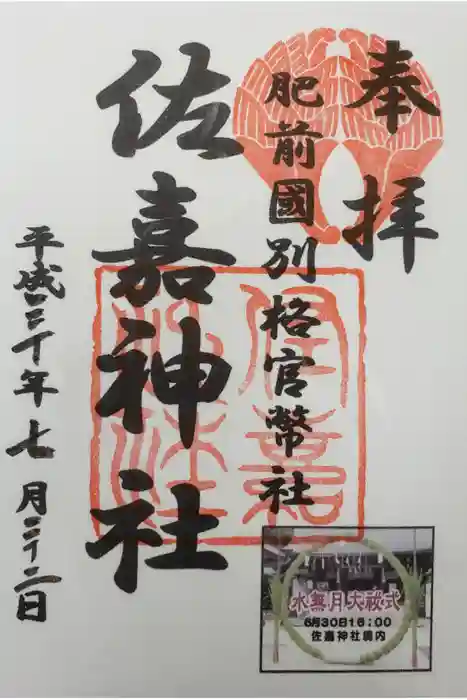 奉拝
肥前國別格官幣社
佐嘉神社
平成三十年七月二十二日
佐嘉神社
水無月大祓式
6月30日16:00
佐嘉神社境内